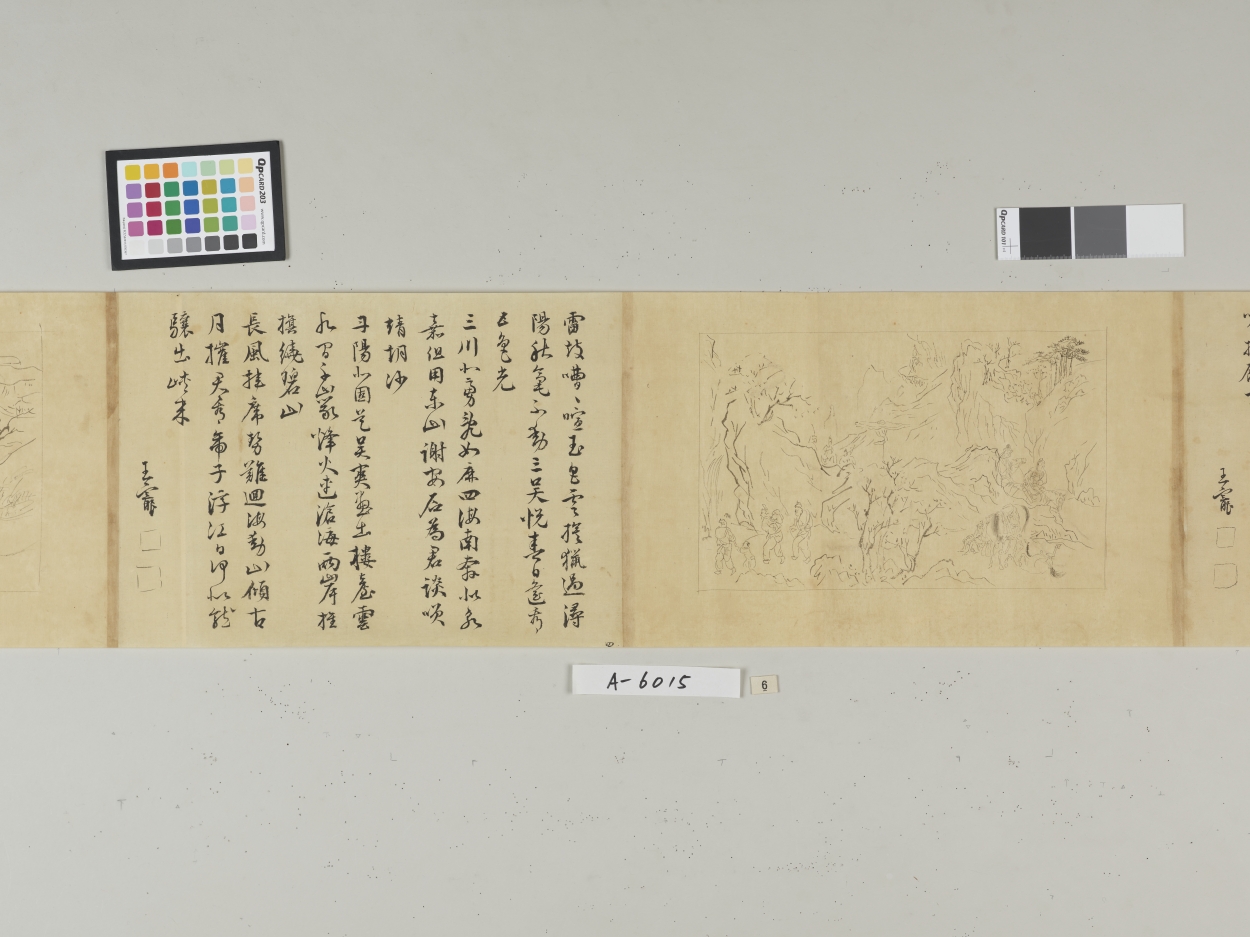 雷鼓嘈〻喧武昌雲旌獵過潯
陽秋毫不動三吳悅春日遙看
五色光
三川北虜亂如麻四海南奔似永
嘉但用東山謝安石為君談笑
靖胡沙
丹陽北固是吳關畫出樓臺雲
水間千巖烽火連滄海兩岸旌
旗繞碧山
長風挂席勢難迴海動山傾古
月摧君看帝子浮江日何似龍
驤出峽來
王寵
王寵
四
A-6015
6
QpCARD 203
QpCARD 101